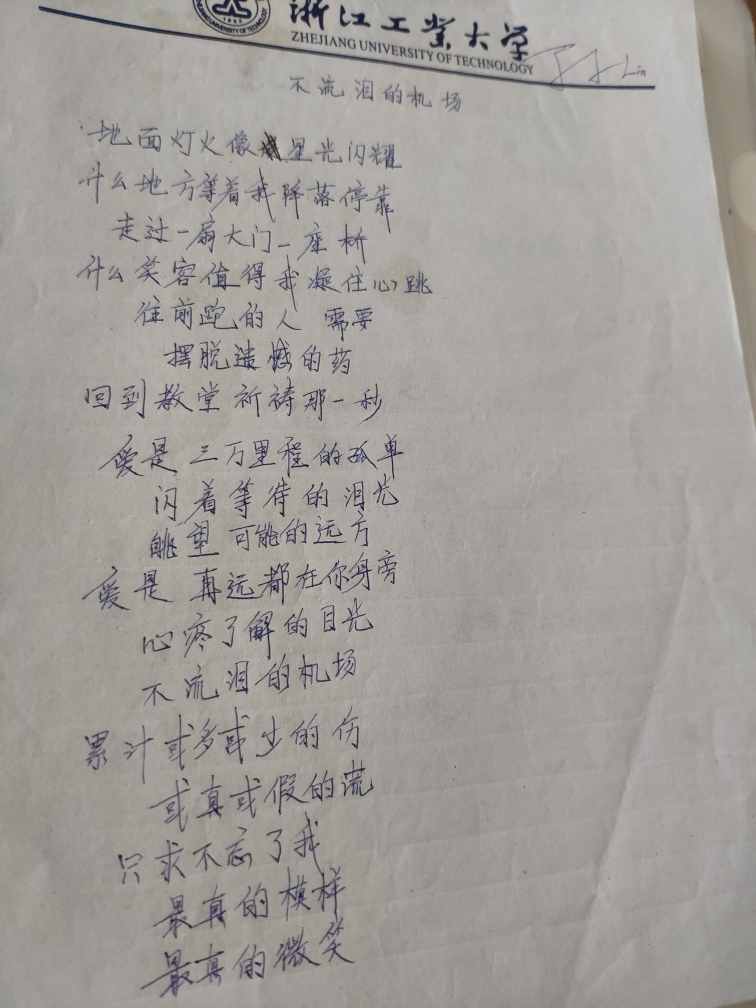 浙江工业大学
ZHEJIANG UNIVERSITY OF TECHNOLOGY
Lin
不流泪的机场
地面灯火像星光闪耀
什么地方等着我降落停靠
走过一扇大门一座桥
什么笑容值得我凝住心跳
往前跑的人 需要
摆脱遗憾的药
回到教堂祈祷那一秒
爱是 三万里程的孤单
闪着等待的泪光
眺望可能的远方
爱是 再远都在你身旁
心疼了解的目光
不流泪的机场
累计或多或少的伤
或真或假的谎
只求不忘了我
最真的模样
最真的微笑